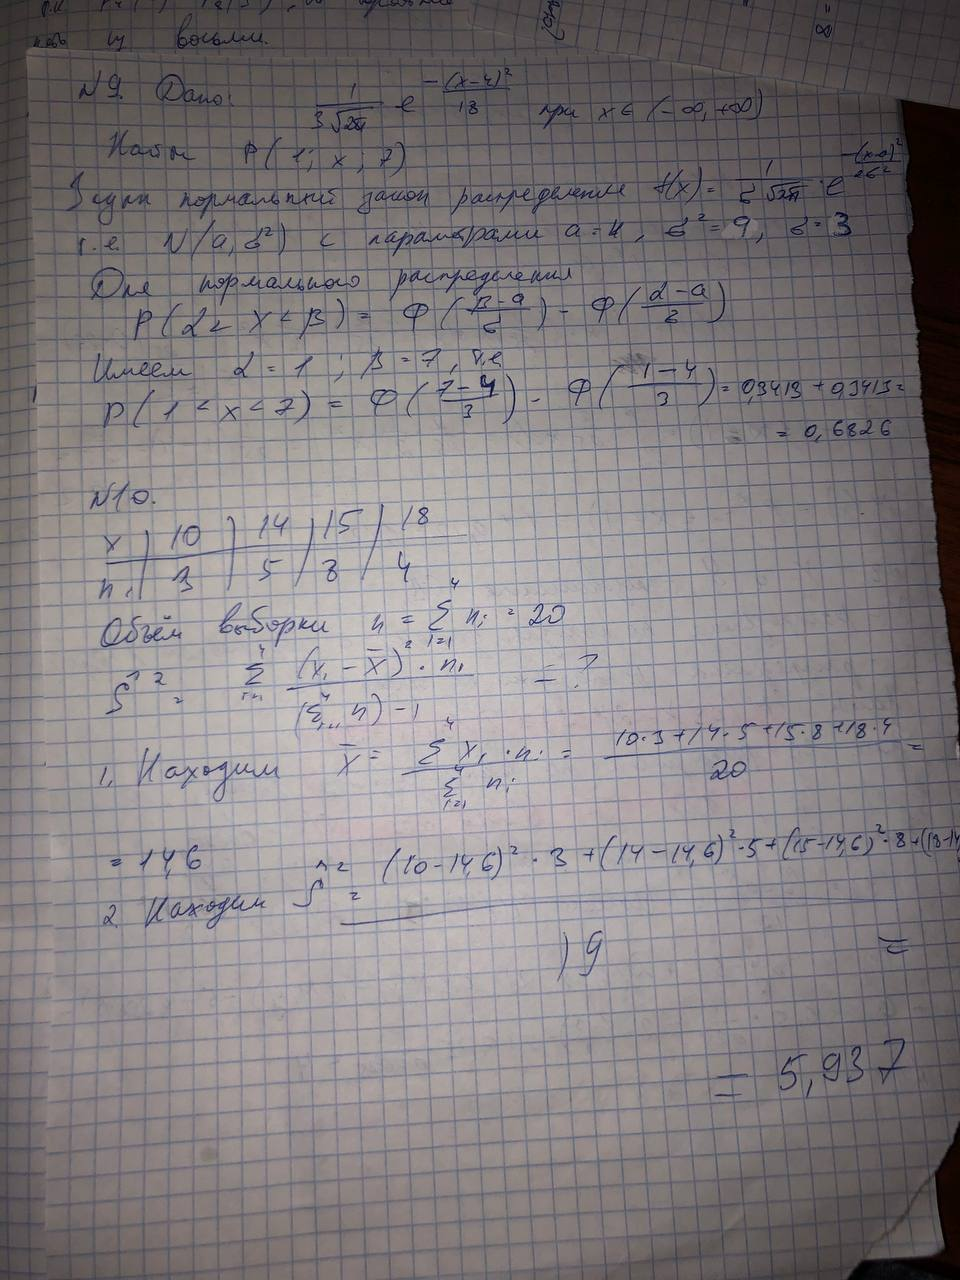 ность из восьми.
№9. Дано: \frac{1}{3\sqrt{2π}} e^{\frac{-(x-4)^2}{18}} при x ∈ (-∞, +∞)
Найти P(1; x; 7)
нормальный закон распределение f(x) = \frac{1}{σ\sqrt{2π}} · e^{\frac{-(x-a)^2}{2σ^2}}
т.е. N(a, σ²) с параметрами a = 4, σ² = 9, σ = 3
Для нормального распределения
P(α < X < β) = Φ(\frac{β-a}{σ}) - Φ(\frac{α-a}{σ})
Имеем α = 1; β = 7, т.е
P(1 < x < 7) = Φ(\frac{7-4}{3}) - Φ(\frac{1-4}{3}) = 0,3413 + 0,3413 =
= 0,6826
№10.
x | 10 | 14 | 15 | 18
n_i | 3 | 5 | 8 | 4
Объём выборки n = \sum_{i=1}^{4} n_i = 20
Ŝ² = \sum_{i=1}^{4} \frac{(x_i - \bar{x})^2 · n_i}{(\sum_{i=1}^{4} n) - 1} = ?
1. Находим \bar{x} = \frac{\sum^{4} x_i · n_i}{\sum_{i=1}^{4} n_i} = \frac{10·3+14·5+15·8+18·4}{20} =
= 14,6
2. Находим Ŝ² = \frac{(10-14,6)^2 · 3 + (14-14,6)^2 · 5 + (15-14,6)^2 · 8 + (18-14}{19} =
= 5,937